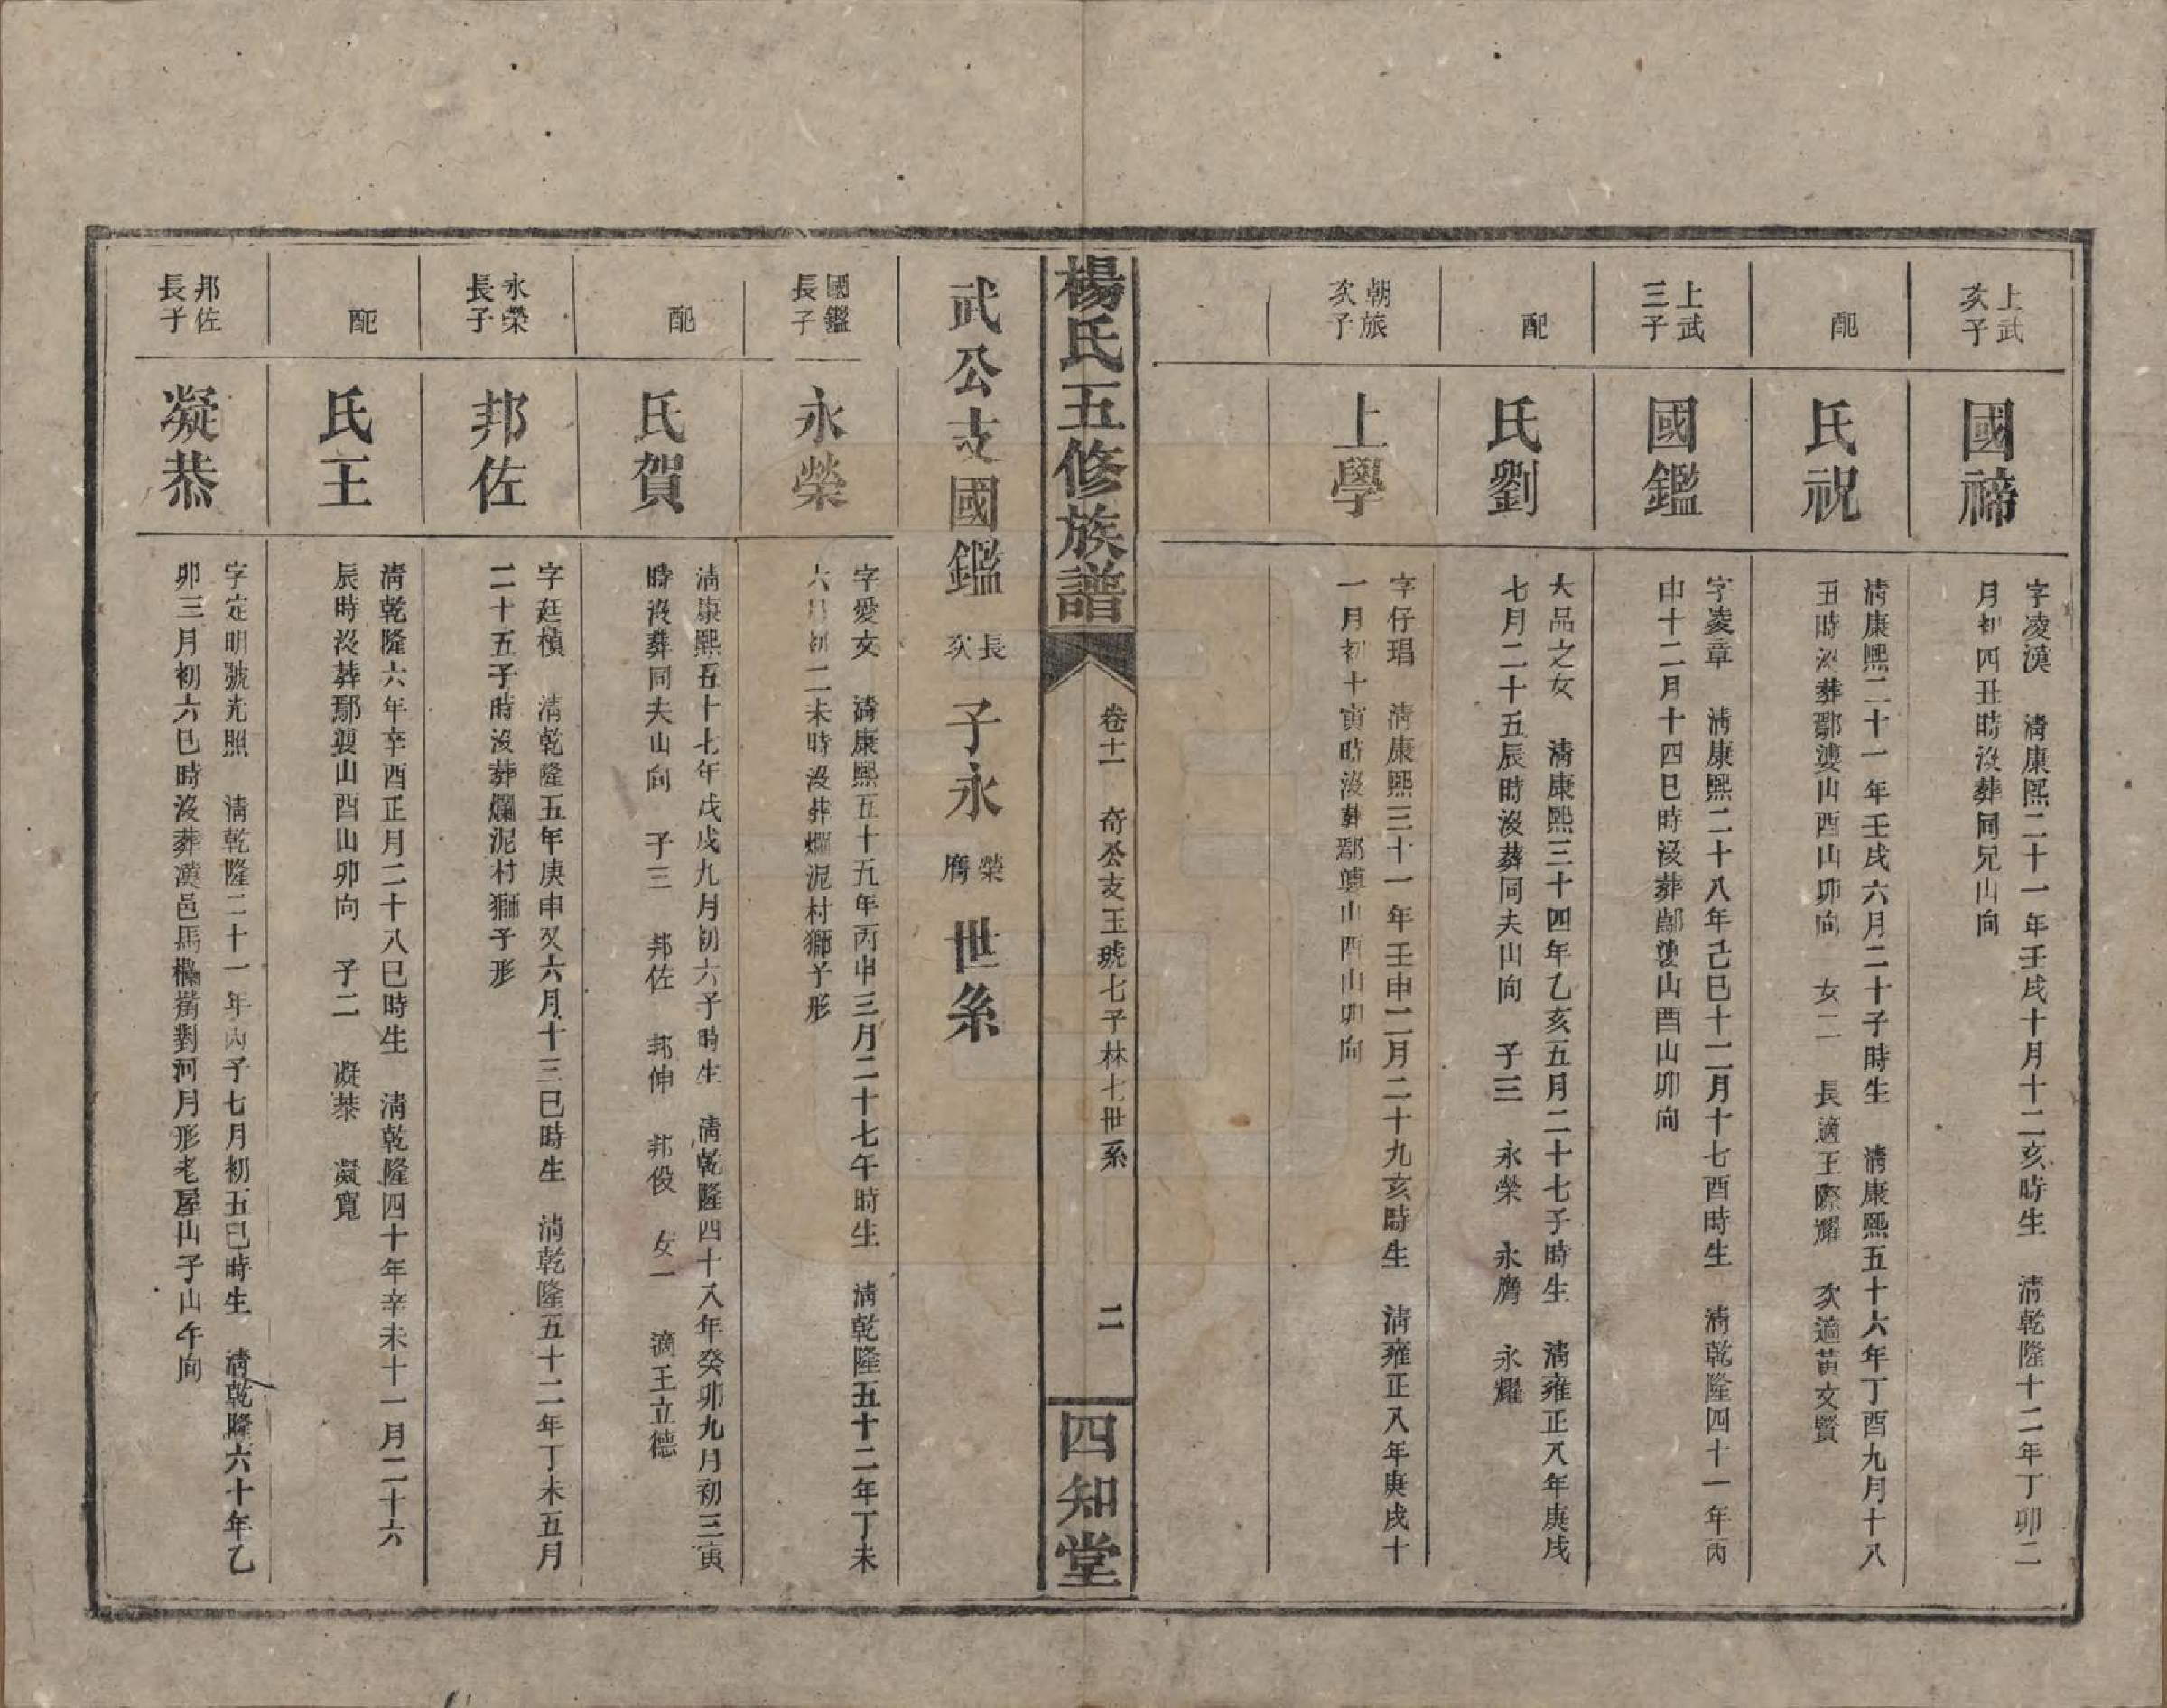 上武
次子
國禘
字凌漢　清康熙二十一年壬戌十月十二亥時生　清乾隆十二年丁卯二
月初四丑時沒葬同兄山向
配
氏祝
清康熙二十一年壬戌六月二十子時生　清康熙五十六年丁酉九月十八
丑時沒葬鄢婆山酉山卯向　女二　長適王際耀　次適黃文賢
上武
三子
國鑑
字凌章　清康熙二十八年己巳十二月十七酉時生　清乾隆四十一年丙
申十二月十四巳時沒葬鄢婆山酉山卯向
配
氏劉
大品之女　清康熙三十四年乙亥五月二十七子時生　清雍正八年庚戌
七月二十五辰時沒葬同夫山向　子三　永榮　永膺　永耀
朝旅
次子
上學
字仔琩　清康熙三十一年壬申二月二十九亥時生　清雍正八年庚戌十
一月初十寅時沒葬鄢婆山酉山卯向
楊氏五修族譜
卷十一　奇公支玉琥七子林七世系
二
四知堂
武公支國鑑長次子永榮膺世系
國鑑
長子
永榮
字愛女　清康熙五十五年丙申三月二十七午時生　清乾隆五十二年丁未
六月初二未時沒葬爛泥村獅子形
配
氏賀
清康熙五十七年戊戌九月初六子時生　清乾隆四十八年癸卯九月初三寅
時沒葬同夫山向　子三　邦佐　邦伸　邦俊　女一　適王立德
永榮
長子
邦佐
字廷楨　清乾隆五年庚申又六月十三巳時生　清乾隆五十二年丁未五月
二十五子時沒葬爛泥村獅子形
配
氏王
清乾隆六年辛酉正月二十八巳時生　清乾隆四十年辛未十一月二十六
辰時沒葬鄢婆山酉山卯向　子二　凝恭　凝寬
邦佐
長子
凝恭
字定明號光照　清乾隆二十一年丙子七月初五巳時生　清乾隆六十年乙
卯三月初六巳時沒葬漢邑馬欄對河月形老屋山子山午向